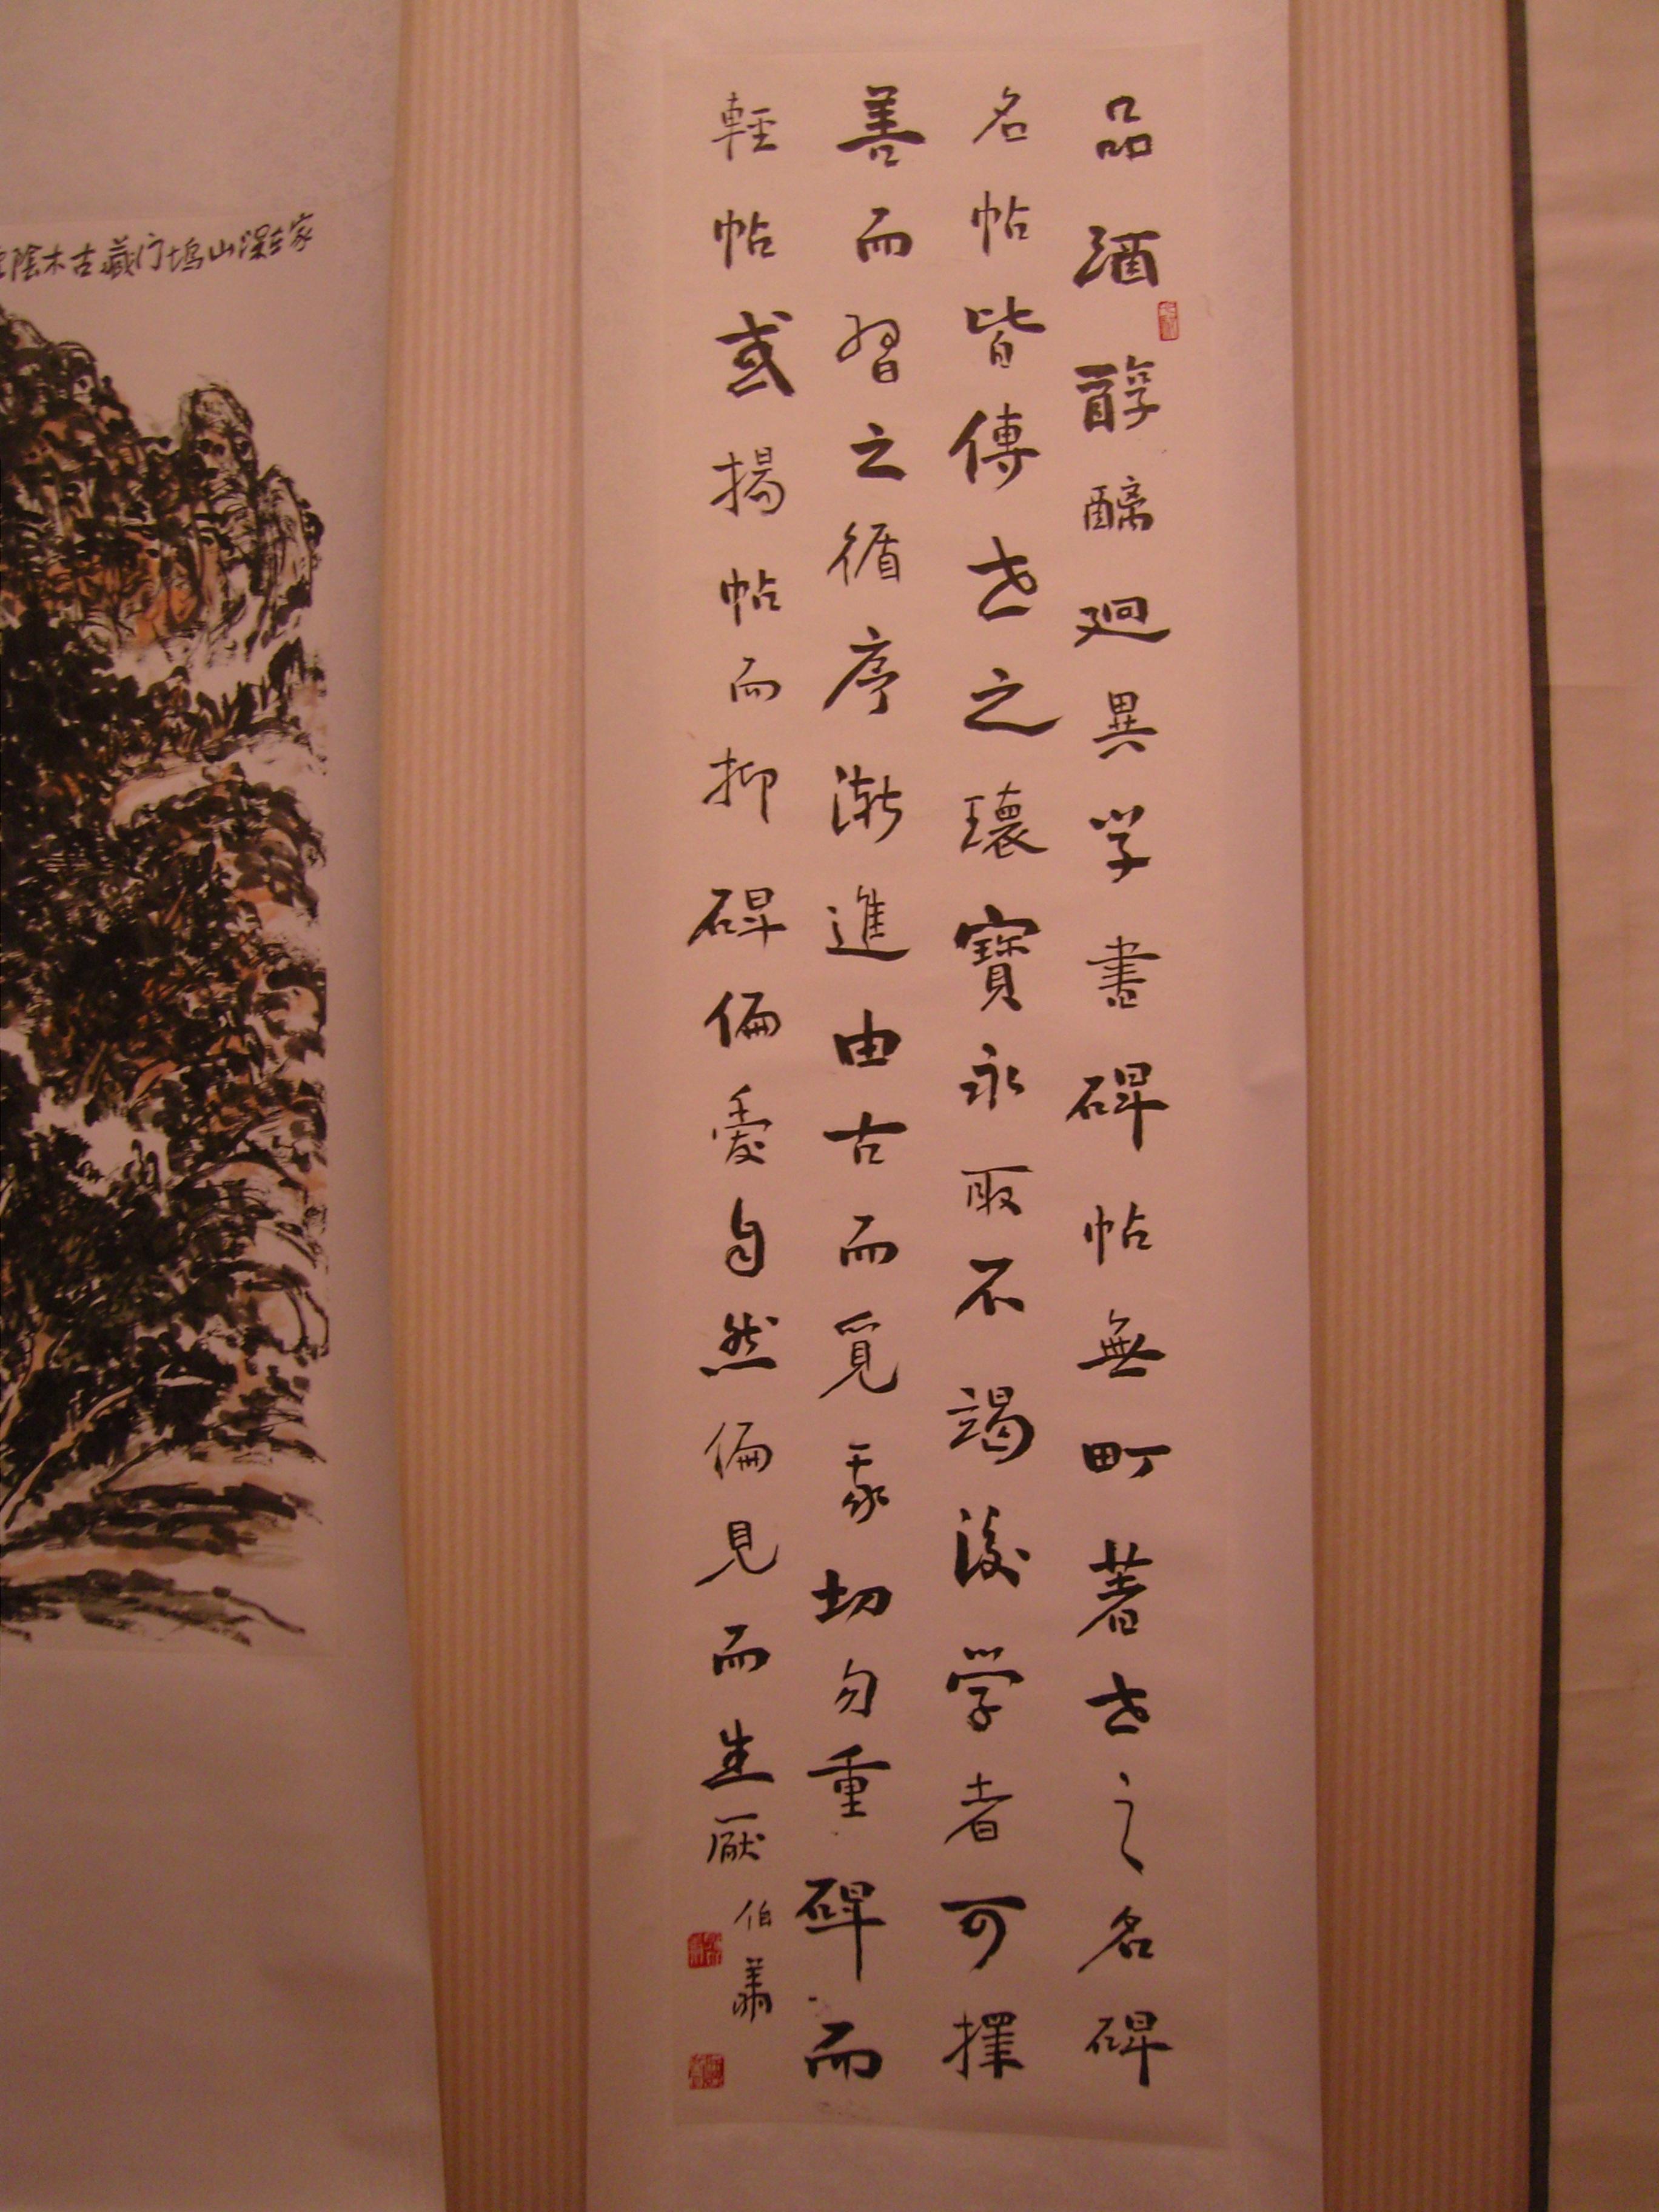 品酒醇醨迥異学書碑帖無町著世之名碑
名帖皆傳世之瓌寶永取不竭後学者可擇
善而習之循序漸進由古而覓我切勿重碑而
輕帖或揚帖而抑碑偏愛自然偏見而生厭
伯
陰木古藏门坞山深家